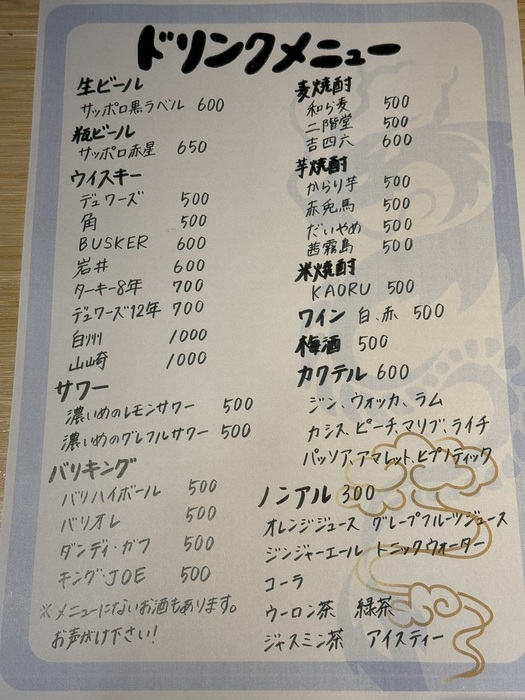 ドリンクメニュー
生ビール
サッポロ黒ラベル 600
瓶ビール
サッポロ赤星 650
ウイスキー
デュワーズ 500
角 500
BUSKER 600
岩井 600
ターキー8年 700
デュワーズ12年 700
白州 1000
山崎 1000
サワー
濃いめのレモンサワー 500
濃いめのグレフルサワー 500
バリキング
バリハイボール 500
バリオレ 500
ダンディ・ガフ 500
キング・JOE 500
※メニューにないお酒もあります。
お声がけ下さい!
麦焼酎
和ら麦 500
二階堂 500
吉四六 600
芋焼酎
からり芋 500
赤兎馬 500
だいやめ 500
茜霧島 500
米焼酎
KAORU 500
ワイン 白、赤 500
梅酒 500
カクテル 600
ジン、ウォッカ、ラム
カシス、ピーチ、マリブ、ライチ
パッソア、アマレット、ヒプノティック
ノンアル 300
オレンジジュース グレープフルーツジュース
ジンジャーエール トニックウォーター
コーラ
ウーロン茶 緑茶
ジャスミン茶 アイスティー